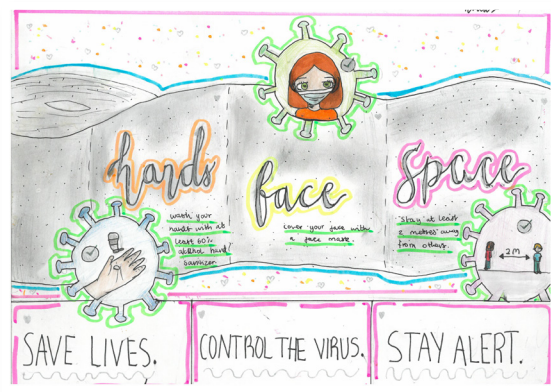 hands
face
space
wash your
hands with at
least 60%
alcohol hand
sanitizer
cover your face with
a face mask.
stay at least
2 metres away
from others.
2M
SAVE LIVES.
CONTROL THE VIRUS.
STAY ALERT.